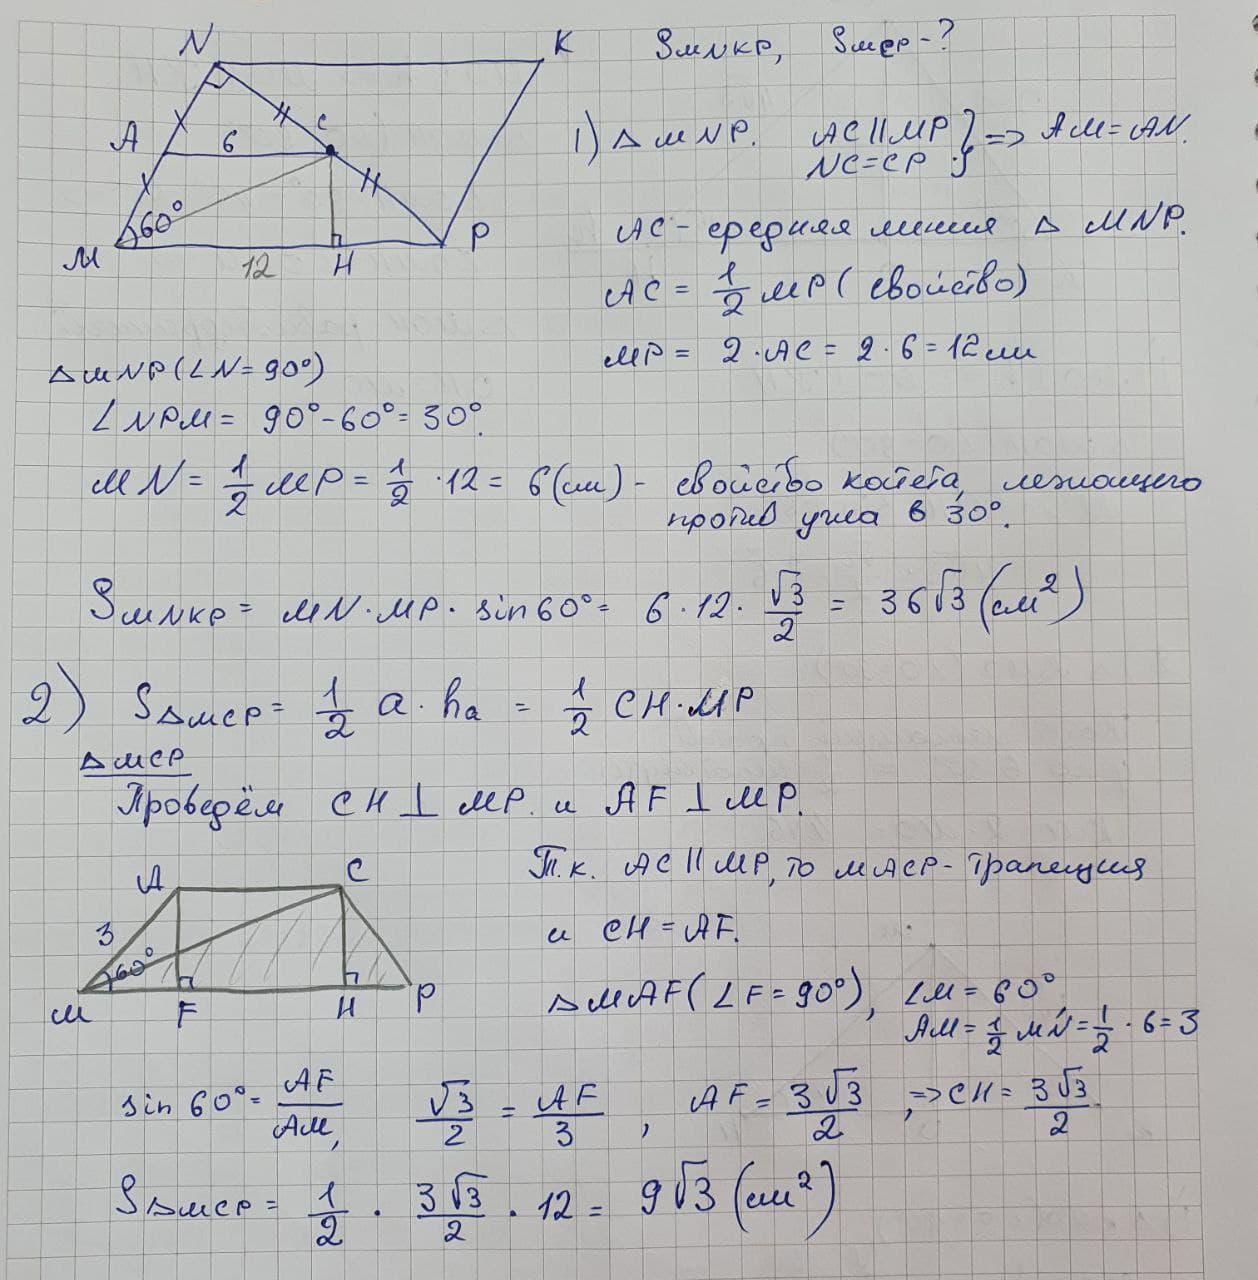 N K Sмnкр, Sмср-?
A 6 C
60°
M 12 H P
1) △MNP. AC||MP } => AM=AN.
NC=CP
AC - средняя линия △ MNP.
AC = 1/2 MP (свойство)
MP = 2·AC = 2·6 = 12см
△MNP (∠N=90°)
∠NPM = 90°-60°= 30°.
MN = 1/2 MP = 1/2 · 12 = 6(см) - свойство катета, лежащего
против угла в 30°.
SMNKP = MN·MP· sin60°= 6·12· √3/2 = 36√3 (см²)
2) S△MCP = 1/2 a·ha = 1/2 CH·MP
△MCP
Проведём CH⊥MP. и AF⊥MP.
A C
3
60°
M F H P
Т.к. AC||MP, то MACP - трапеция
и CH = AF.
△MAF (∠F=90°), ∠M=60°
AM= 1/2 MN= 1/2 · 6=3
sin 60°= AF/AM, √3/2 = AF/3, AF = 3√3/2, => CH = 3√3/2.
S△MCP = 1/2 · 3√3/2 · 12 = 9√3 (см²)